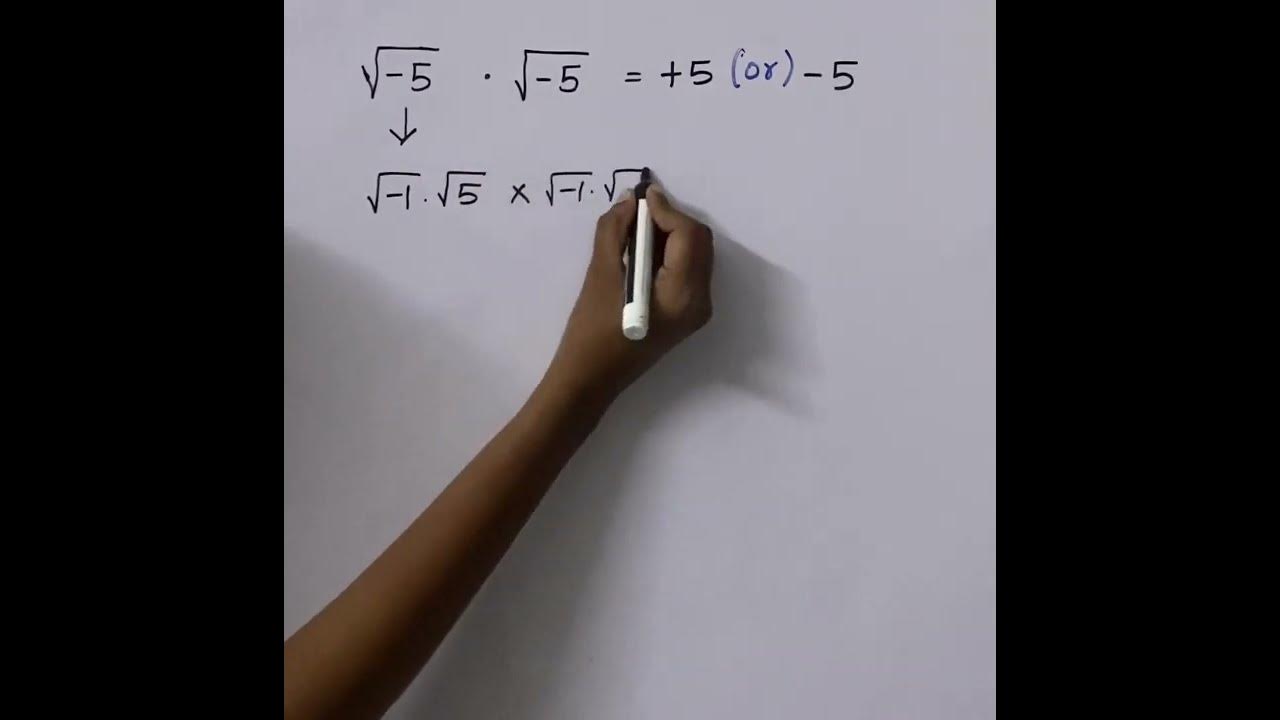 √-5 · √-5 = +5 (or) -5
↓
√-1 · √5 × √-1 · √